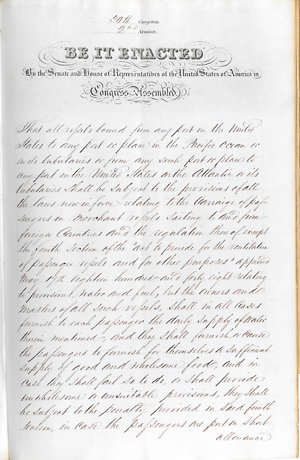 30th Congress,
2nd Session.
BE IT ENACTED
By the Senate and House of Representatives of the United States of America in
Congress Assembled,
That all vessels bound from any port in the United
States to any port or place in the Pacific Ocean or
on its tributaries or from any such port or place to
any port in the United States on the Atlantic or its
tributaries shall be subject to the provisions of all
the laws now in force relating to the carriage of pas-
sengers in merchant vessels sailing to and from
foreign Countries and the regulation thereof except
the fourth section of the "act to provide for the ventilation
of passenger vessels and for other purposes" approved
May 17th eighteen hundred and forty eight relating
to provisions, water and fuel, but the owners and
masters of all such vessels, shall in all cases
furnish to each passenger the daily supply of water
therein mentioned, and they shall furnish or cause
the passengers to furnish for themselves a sufficient
supply of good and wholesome food, and in
case they shall fail so to do, or shall provide
unwholesome or unsuitable provisions, they shall
be subject to the penalty provided in said fourth
section, in case the passengers are put on short
allowance